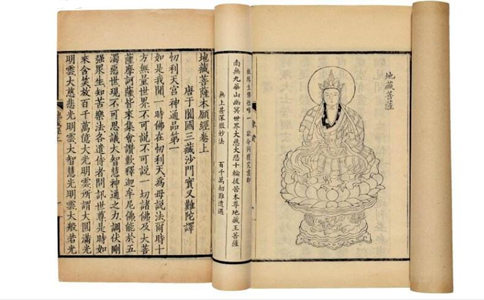 地藏菩薩
南無九華山幽冥世界大慈大悲十輪拔苦本尊地藏王菩薩
無上甚深微妙法　百千萬劫難遭遇
地藏菩薩本願經卷上
唐于闐國三藏沙門實叉難陀譯
忉利天宮神通品第一
如是我聞一時佛在忉利天為母說法爾時十
方無量世界不可說不可說一切諸佛及大菩
薩摩訶薩皆來集會讚歎釋迦牟尼佛能於五
濁惡世現不可思議大智慧神通之力調伏剛
強眾生知苦樂法各遣侍者問訊世尊是時如
來含笑放百千萬億大光明雲所謂大圓滿光
明雲大慈悲光明雲大智慧光明雲大般若光